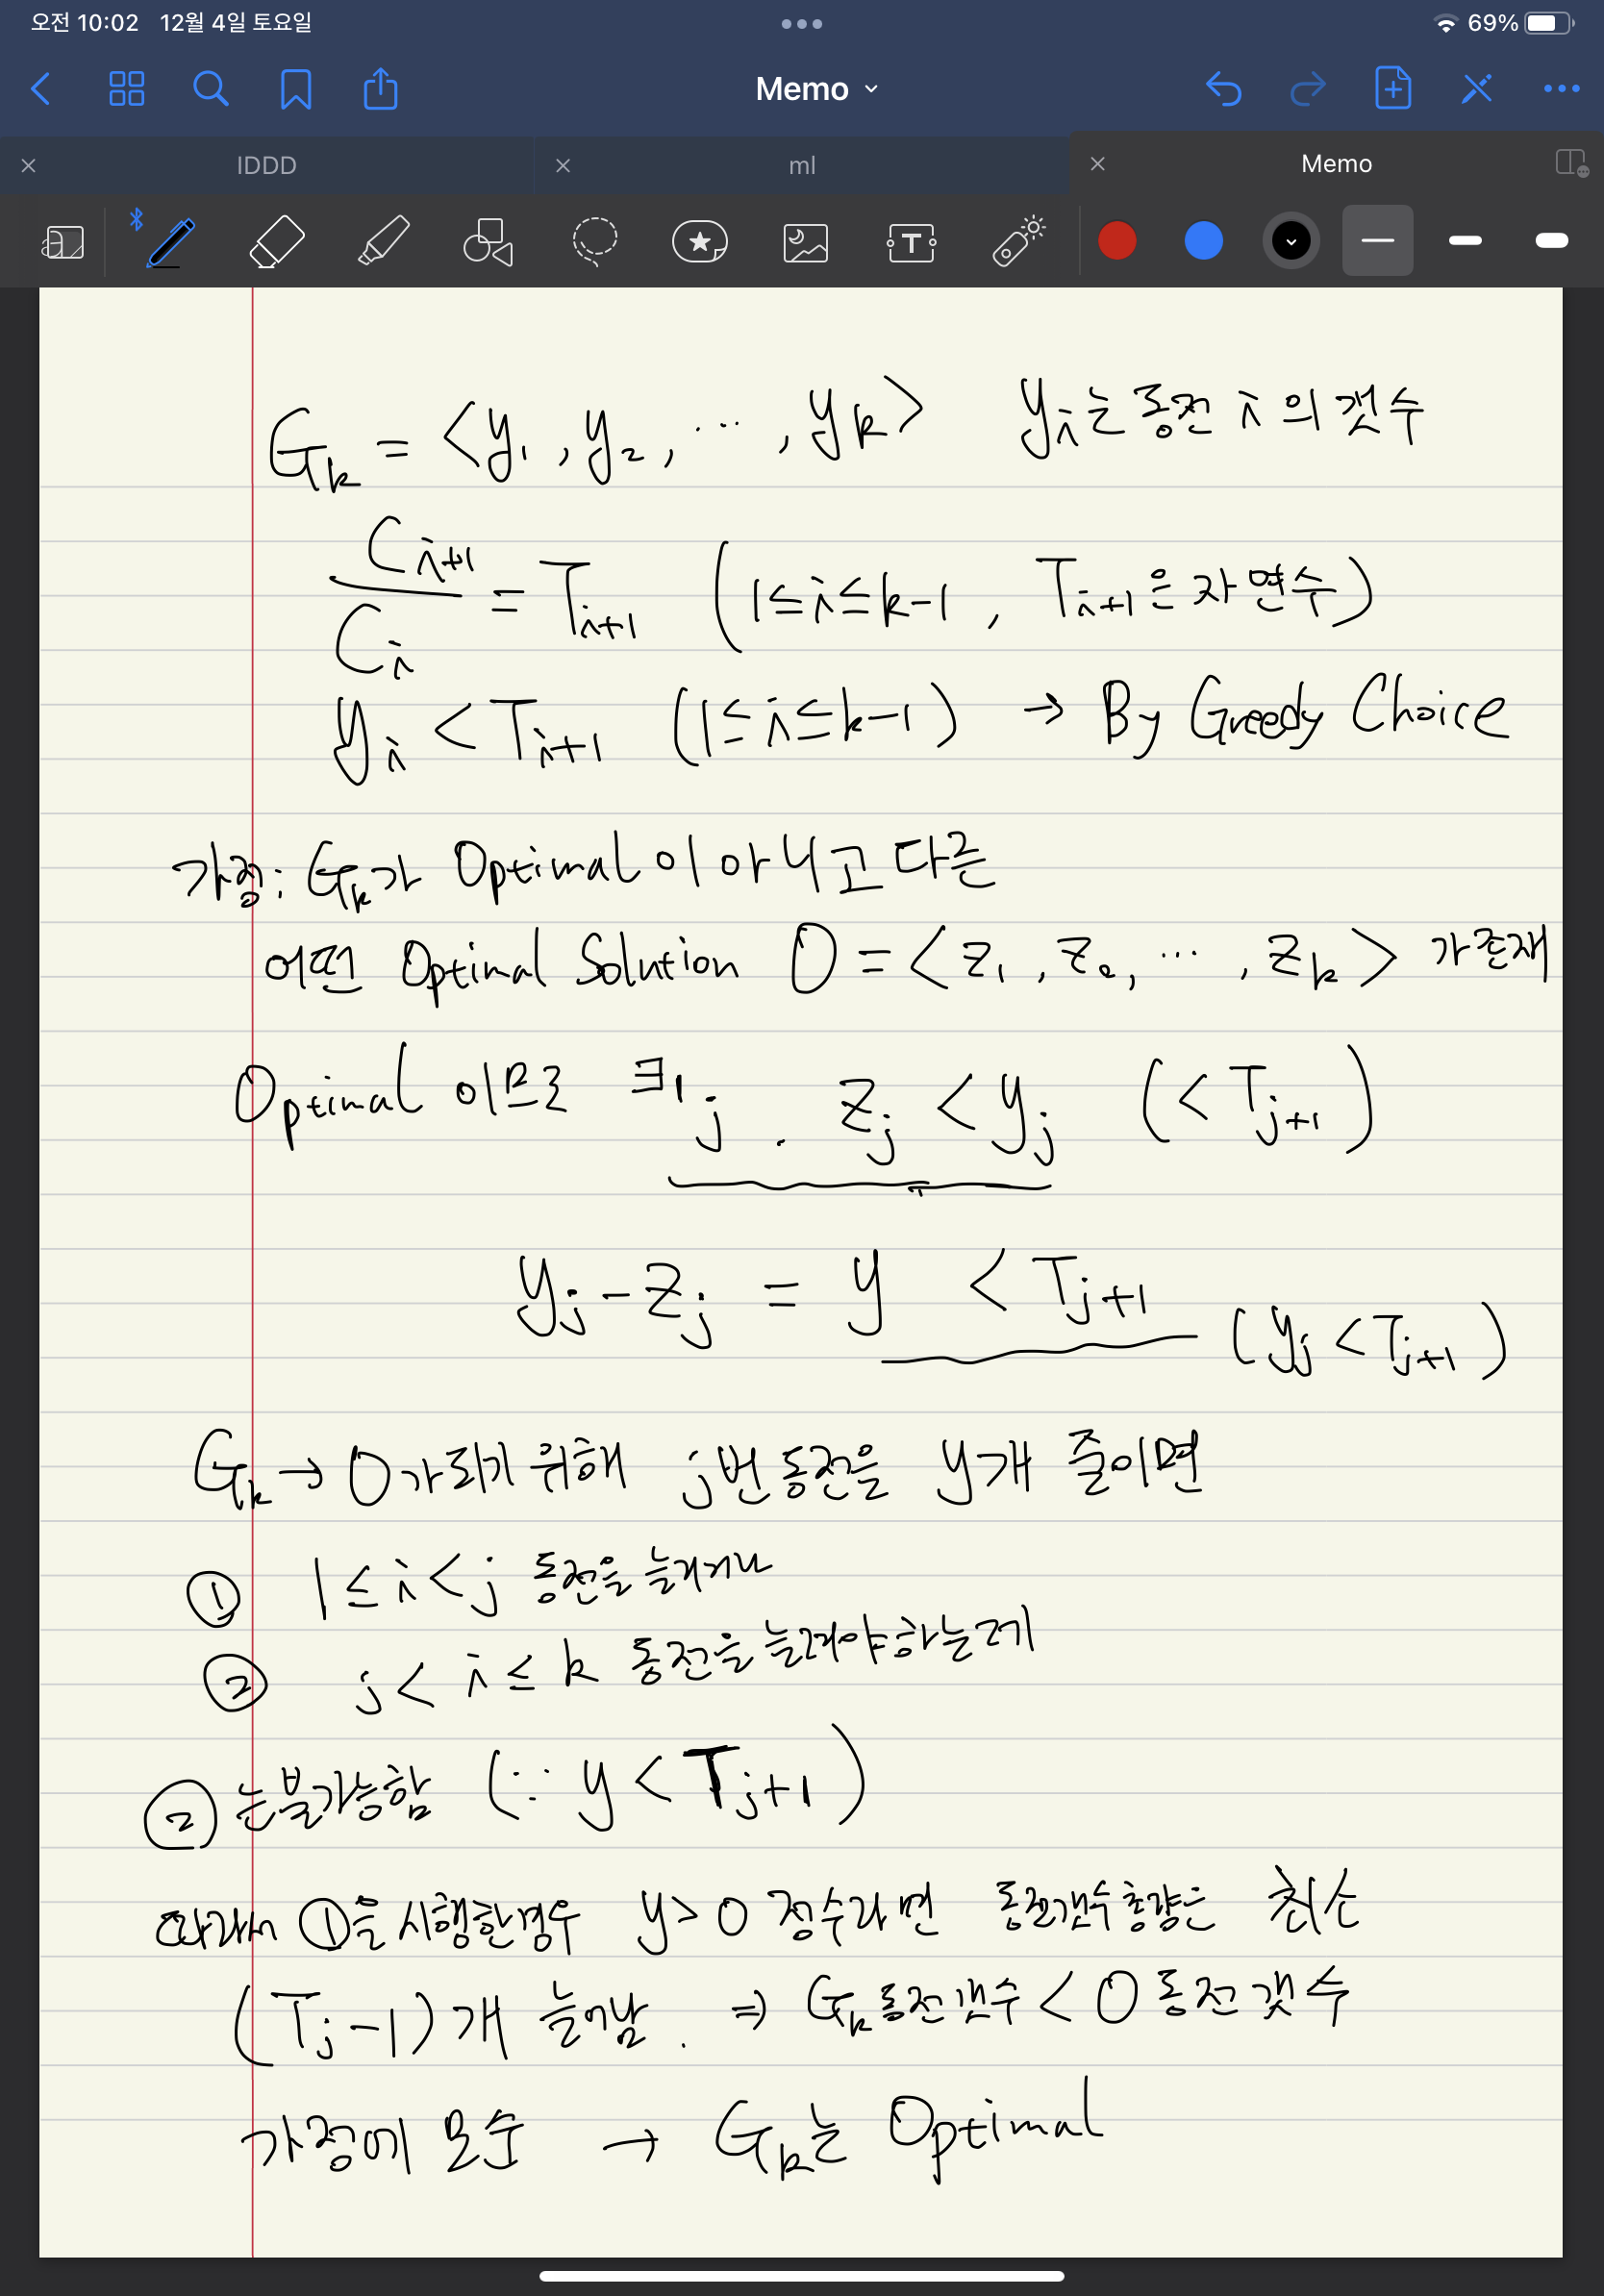 오전 10:02 12월 4일 토요일
69%
Memo
IDDD
ml
Memo
G_k = <y_1, y_2, ⋯, y_k> y_i는 동전 i의 갯수
C_{i+1}/C_i = T_{i+1} (1≤i≤k-1, T_{i+1}은 자연수)
y_i < T_{i+1} (1≤i≤k-1) → By Greedy Choice
가정: G_k가 Optimal이 아니고 다른
어떤 Optimal Solution O = <z_1, z_2, ⋯, z_k> 가 존재
Optimal 이므로 ∃ j . z_j < y_j (< T_{j+1})
y_j - z_j = y < T_{j+1} (y_j < T_{j+1})
G_k → O가 되기 위해 j번 동전을 y개 줄이면
① 1≤i<j 동전을 늘리거나
② j<i≤k 동전을 늘려야하는데
②는 불가능함 (∵ y < T_{j+1})
따라서 ①을 시행한 경우 y>0 정수라면 동전갯수 총량은 최소
(T_j-1)개 늘어남. ⇒ G_k 동전갯수 < O 동전갯수
가정에 모순 → G_k는 Optimal